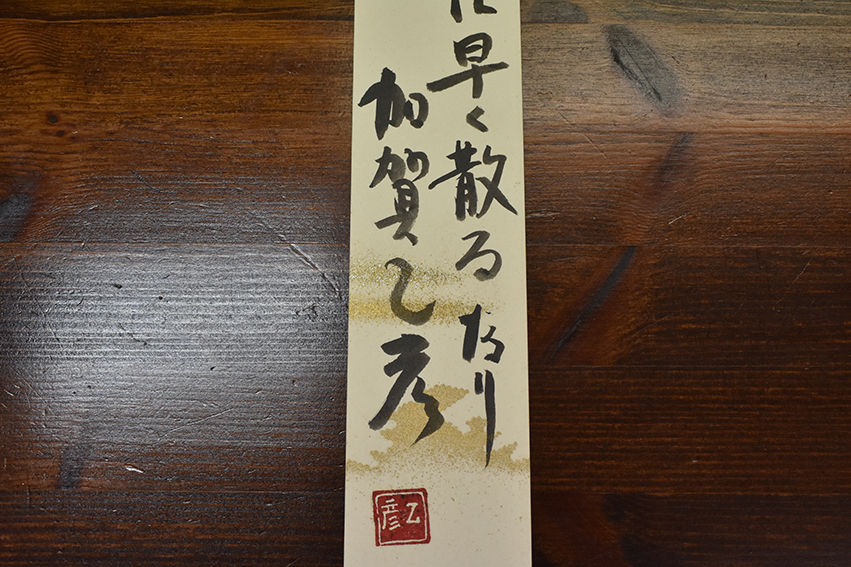 に早く散るなり
加賀乙彦
乙彦